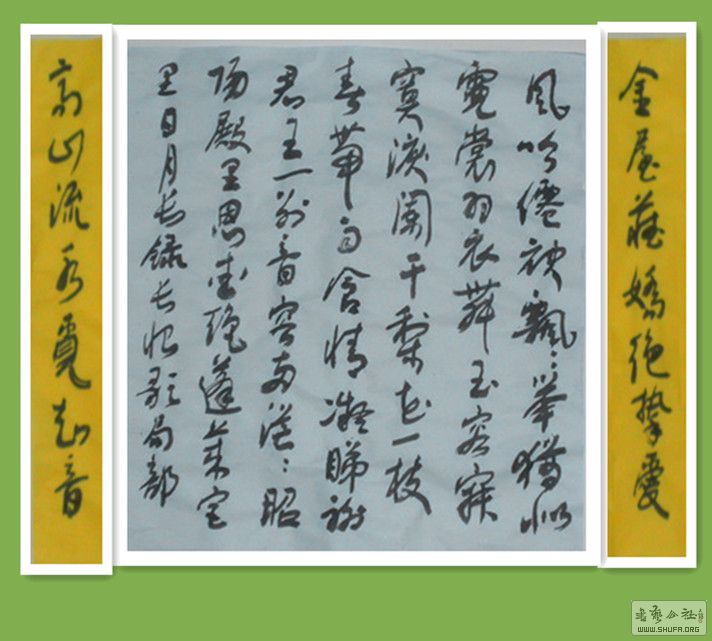 金屋藏嬌絕摯愛
風吹僊袂飄〻舉猶似
霓裳羽衣舞玉容寂
寞淚闌干梨花一枝
春帶雨含情凝睇謝
君王一别音容两茫〻昭
陽殿里恩愛絕蓬萊宮
里日月长錄长恨歌局部
高山流水覓知音
WWW.SHUFA.ORG